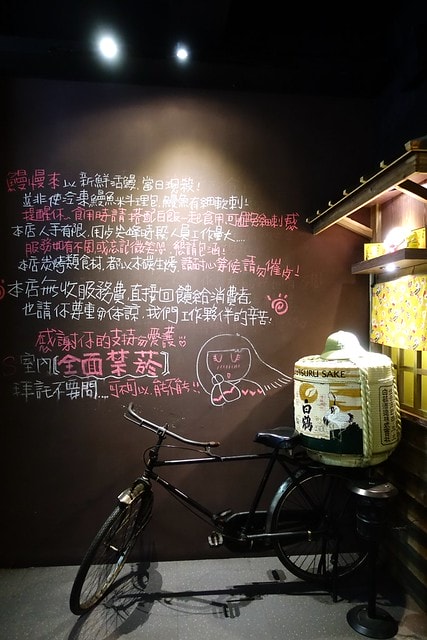 鰻慢來以新鮮活鰻,當日現殺!
並非使冷凍鰻魚料理包,鰻魚有細軟刺!
提醒你...食用時請搭配白飯一起食用,可避免細刺感
本店人手有限,用餐尖峰時段人員工作量大...
服務如有不周或忘記微笑,鰻請包涵!
本店炭烤類食材,都以木碳生烤,請耐心等候,請勿催促!
本店無收服務費,直接回饋給消費者
也請你尊重與体諒,我們工作夥伴的辛苦!
感謝你的支持與愛護
室內[全面禁菸]
拜託不要問... 可不可以,能不能!!
TSURU SAKE
白鶴